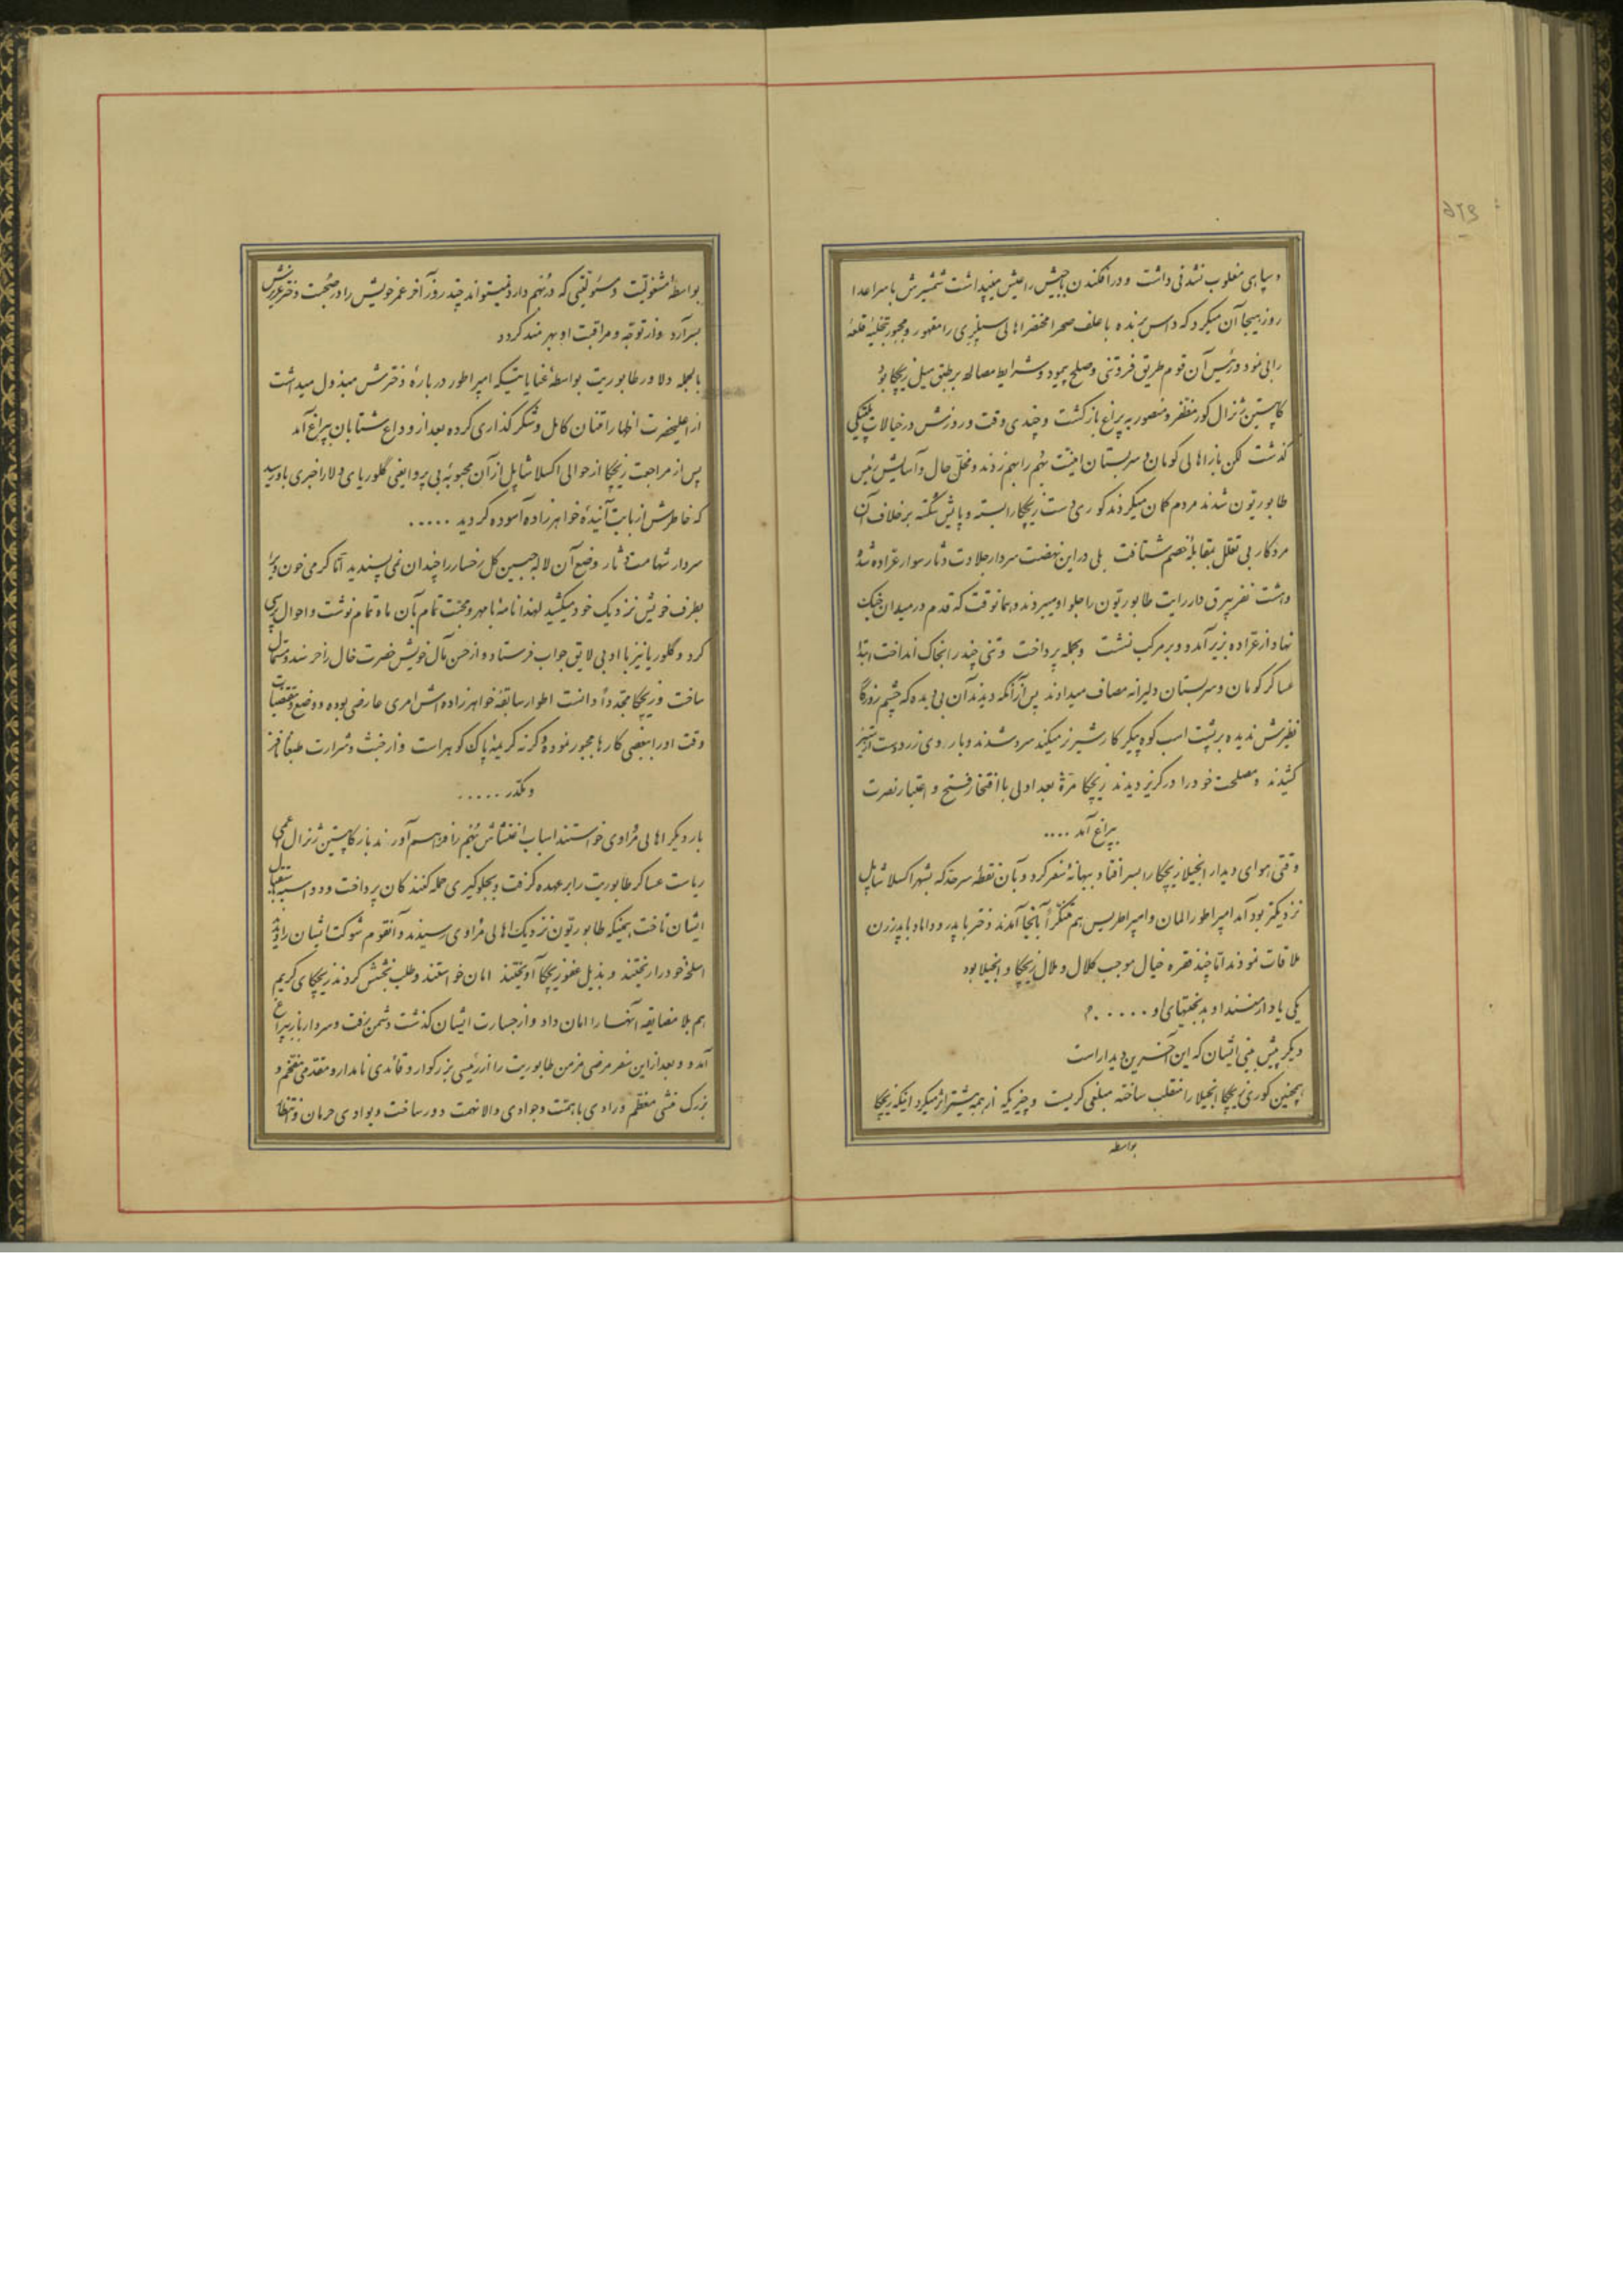 و سپاهی مغلوب نشدنی داشت و در افکندن با جیش راعیش میپنداشت شمشیرش با سر اعدا
روز هیجا آن میکرد که داس برنده با علف صحرا مختصر اهالی سیلیزی را مقهور و مجبور بتخلیه قلعه
رابی نمود و رئیس آن قوم طریق فروتنی و صلح پیمود و شرایط مصالحه بر طبق میل زیچکا بود
کاپیتین ژنرال کور مظفر و منصور به پراغ بازگشت و چندی وقت و روزش در خیالات پلتیکی
گذشت لکن باز اهالی کومان و سربستان امنیت بهم را بهم زدند و مخل حال و آسایش رئیس
طابوریتون شدند مردم گمان میکردند کوری دست زیچکا را بسته و پایش شکسته برخلاف آن
مرد کار بی تعلل بمقابله خصم شتافت بلی در این نهضت سردار جلادت دثار سوار عراده شد
و هشت نفر بیرق دار رایت طابوریتون را جلو او میبردند و همانوقت که قدم در میدان جنگ
نهاد از عراده بزیر آمد و بر مرکب نشست و بحمله پرداخت و تنی چند را بخاک انداخت ابتدا
عساکر کومان و سربستان دلیرانه مصاف میدادند پس از آنکه دیدند آن بی دیده که چشم روزگار
نظیرش ندیده بر پشت اسب کوه پیکر کار شیر نر میکند سرد شدند و با روی زرد دست از ستیز
کشیدند و مصلحت خود را در گریز دیدند زیچکا مرة بعد اولی با افتخار فتح و اعتبار نصرت
بپراغ آمد ....
وقتی هوای دیدار انجیلا زیچکا را بسر افتاد و ببهانه سفر کرد و بآن نقطه سرحد که بشهر اکسلا شاپل
نزدیکتر بود آمد امپراطور المان و امپراطریس هم متنکرا بآنجا آمدند دختر با پدر و داماد با پدرزن
ملاقات نمودند اما چند فقره خیال موجب کلال و ملال زیچکا و انجیلا بود
یکی یاد ارمنسندا و بدبختیهای او ......
دیگر پیش بینی ایشان که این آخرین دیدار است
همچنین کوری زیچکا انجیلا را منقلب ساخته مبلغی گریست و چیزیکه از همه بیشتر اثر میکرد اینکه زیچکا
بواسطه
بواسطه مشغولیت و مسئولیتی که در بهم دارد نمیتواند چند روز آخر عمر خویش را در صحبت دختر عزیزش
بسر آرد و از توجه و مراقبت او بهره مند گردد
بالجمله دلاور طابوریت بواسطه عنایاتیکه امپراطور درباره دخترش مبذول میداشت
از اعلیحضرت اظهار امتنان کامل و شکرگذاری کرده بعد از وداع شتابان بپراغ آمد
پس از مراجعت زیچکا از حوالی اکسلا شاپل از آن محبوبه بی پروا یعنی گلوریای دلارا خبری باو رسید
که خاطرش از بابت آتیه خواهرزاده آسوده گردید .....
سردار شهامت دثار وضع آن لاله جبین گل رخسار را چندان نمی پسندید اما گرمی خون ویرا
بطرف خویش نزدیک خود میکشید لهذا نامه با مهر و محبت تمام بآن ماه تمام نوشت و احوال پرسی
کرد و گلوریا نیز با ادبی لایق جواب فرستاد و از حسن مآل خویش حضرت خال را خرسند و مستمال
ساخت و زیچکا مجددا دانست اطوار سابقه خواهرزاده اش امری عارضی بوده و وضع و مقتضیات
وقت او را ببعضی کارها مجبور نموده و گرنه کریمه پاک گوهر است و از خبث و شرارت طبعا متنفر
و مکدر .....
بار دیگر اهالی مراوی خواستند اسباب اغتشاش بهم را فراهم آورند باز کاپیتین ژنرال اعمی
ریاست عساکر طابوریت را بر عهده گرفت و بجلوگیری حمله کنندگان پرداخت و دو اسبه باستقبال
ایشان تاخت همینکه طابوریتون نزدیک اهالی مراوی رسیدند و آنقوم شوکت ایشان را دیدند
اسلحه خود را ریختند و بذیل عفو زیچکا آویختند امان خواستند و طلب بخشش کردند زیچکای کریم
هم بلا مضایقه آنها را امان داد و از جسارت ایشان گذشت دشمن برفت و سردار باز بپراغ
آمد و بعد از این سفر مرضی مزمن طابوریت را از رئیسی بزرگوار و قائدی نامدار و مقدمی مفخم و
بزرگ منشی معظم و رادی با همت و جوادی والا نهمت دور ساخت و بوادی حرمان و